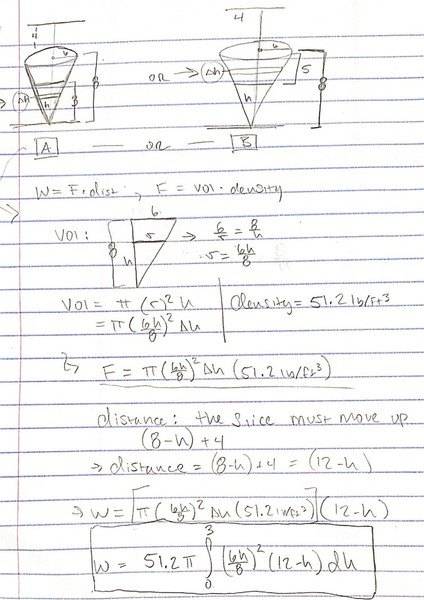 4
4
6
6
8
Δh
h
3
OR → Δh
h
5
8
A — OR — B
W = F·dist , F = vol·density
VOl:
6
8
r
h
→ 6/r = 8/h
r = 6h/8
VOl = π (r)² h
= π(6h/8)² Δh
density = 51.2 lb/ft³
F = π(6h/8)² Δh (51.2 lb/ft³)
distance: the slice must move up
(8-h) + 4
⇒ distance = (8-h)+4 = (12-h)
⇒ W = [π(6h/8)² Δh (51.2 lb/ft³)] (12-h)
W = 51.2 π ∫₀³ (6h/8)² (12-h) dh